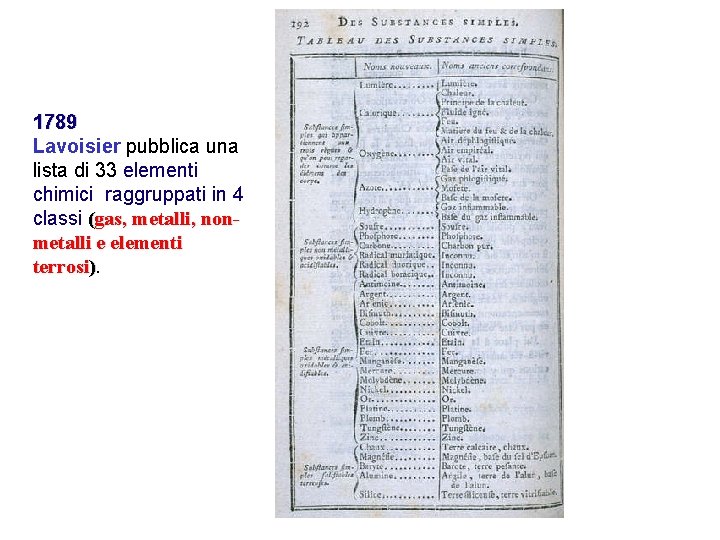 1789
Lavoisier pubblica una
lista di 33 elementi
chimici raggruppati in 4
classi (gas, metalli, non-
metalli e elementi
terrosi).
192 DES SUBSTANCES SIMPLES.
TABLEAU DES SUBSTANCES SIMPLES.
Noms nouveaux. Noms anciens correspondans.
Substances sim-
ples qui appar-
tiennent aux
trois règnes &
qu'on peut regar-
der comme les
élémens des
corps.
Lumière......... Lumière.
Calorique....... Chaleur.
Principe de la chaleur.
Fluide igné.
Feu.
Matière du feu & de la chaleur.
Oxygène......... Air déphlogistiqué.
Air empiréal.
Air vital.
Base de l'air vital.
Azote........... Gaz phlogistiqué.
Mofete.
Base de la mofete.
Hydrogène....... Gaz inflammable.
Base du gaz inflammable.
Substances sim-
ples non métalli-
ques oxidables &
acidifiables.
Soufre.......... Soufre.
Phosphore....... Phosphore.
Carbone......... Charbon pur.
Radical muriatique. Inconnu.
Radical fluorique.. Inconnu.
Radical boracique.. Inconnu.
Substances sim-
ples métalliques
oxidables & aci-
difiables.
Antimoine....... Antimoine.
Argent.......... Argent.
Arsenic......... Arsenic.
Bismuth......... Bismuth.
Cobolt.......... Cobolt.
Cuivre.......... Cuivre.
Etain........... Etain.
Fer............. Fer.
Manganèse....... Manganèse.
Mercure......... Mercure.
Molybdène....... Molybdène.
Nickel.......... Nickel.
Or.............. Or.
Platine......... Platine.
Plomb........... Plomb.
Tungstène....... Tungstène.
Zinc............ Zinc.
Substances sim-
ples salifiables
terreuses.
Chaux........... Terre calcaire, chaux.
Magnésie........ Magnésie, base du sel d'Epsom.
Baryte.......... Barote, terre pesante.
Alumine......... Argile, terre de l'alun, base
de l'alun.
Silice.......... Terre siliceuse, terre vitrifiable.